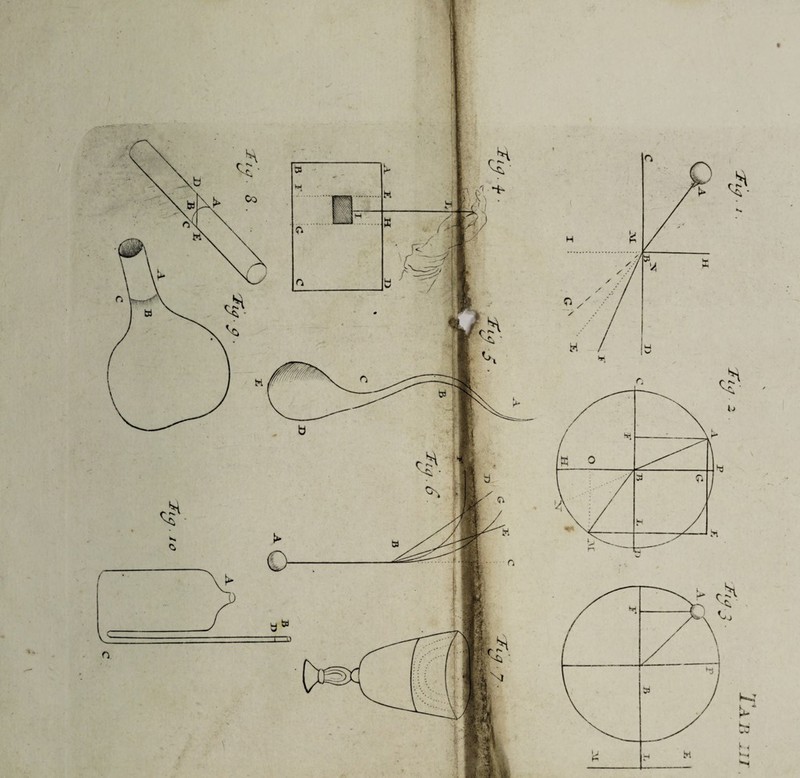 TAB III
Fig. 1.
A
H
C
M
B
N
D
I
G
E
F
Fig 2
A
P
E
F
G
C
B
L
D
H
O
N
M
Fig 3.
A
P
F
B
E
L
M
Fig. 4.
L
A
E
H
D
I
B
F
G
C
Fig 5.
A
B
C
D
E
Fig. 6.
D
G
E
C
B
A
Fig. 7.
Fig. 8.
D
A
B
C
E
Fig. 9.
A
B
C
Fig. 10
A
B
D
C